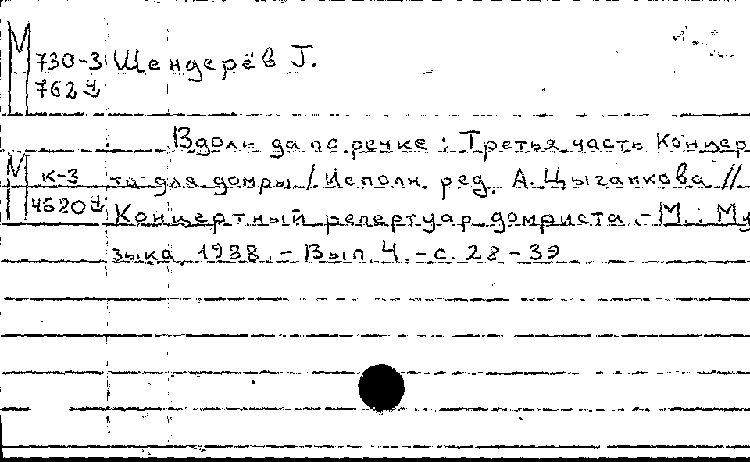 М 730-3 Шендерёв Г.
762
Вдоль да по речке : Третья часть Концер
М К-3 та для домры / Исполн. ред. А. Цыганкова //
4520 Концертный репертуар домриста. - М. : Му
зыка, 1988. - Вып. 4. - с. 28 - 39